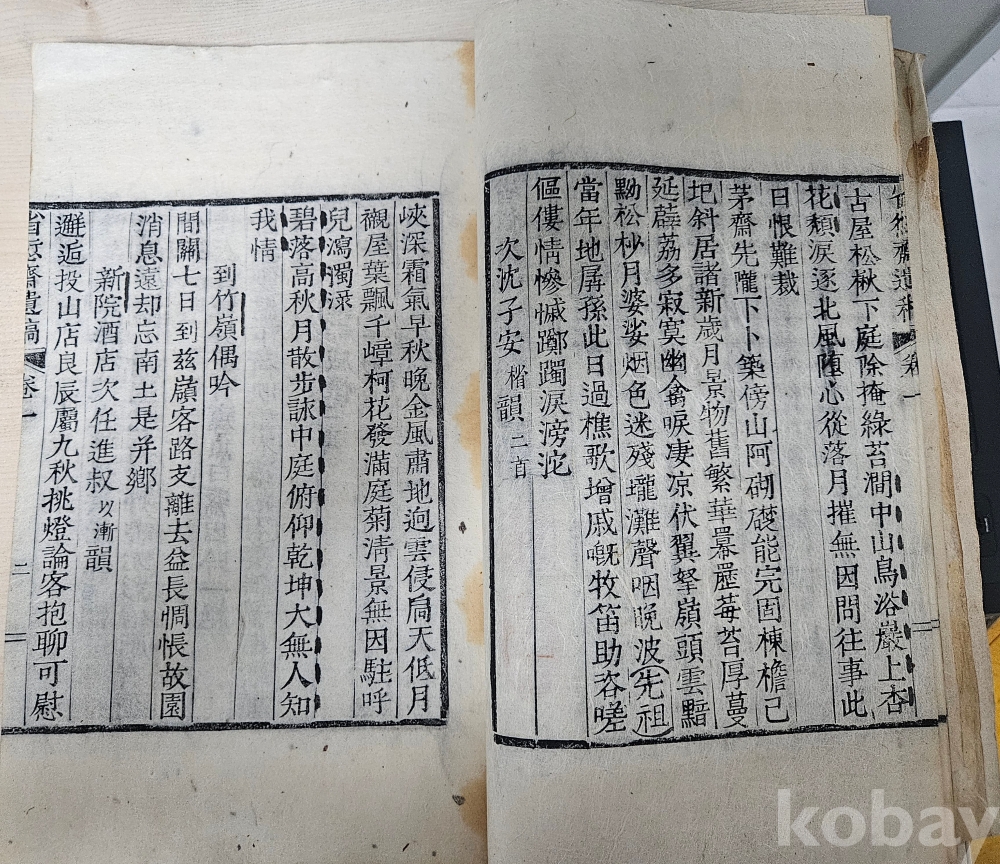 省愆齋遺稿 卷一
古屋松楸下庭除掩綠苔澗中山鳥浴巖上杏
花頹淚逐北風隕心從落月摧無因問往事此
日恨難裁
茅齋先隴下卜築傍山阿砌礎能完固棟檐已
圯斜居諸新歲月景物舊繁華羃䍥莓苔厚蔓
延薜荔多寂寞幽禽唳凄凉伏翼拏嶺頭雲黯
黝松杪月婆娑烟色迷殘壠灘聲咽晚波先祖
當年地孱孫此日過樵歌增戚嘅牧笛助咨嗟
傴僂情慘慽躑躅淚滂沱
次沈子安楷韻二首
峽深霜氣早秋晚金風肅地逈雲侵扃天低月
襯屋葉飄千嶂柯花發滿庭菊清景無因駐呼
兒瀉濁醁
碧落高秋月散步詠中庭俯仰乾坤大無人知
我情
到竹嶺偶吟
間關七日到玆嶺客路支離去益長惆悵故園
消息遠却忘南土是并鄉
新院酒店次任進叔以漸韻
邂逅投山店良辰屬九秋挑燈論客抱聊可慰
省愆齋遺稿 卷一 二
kobay